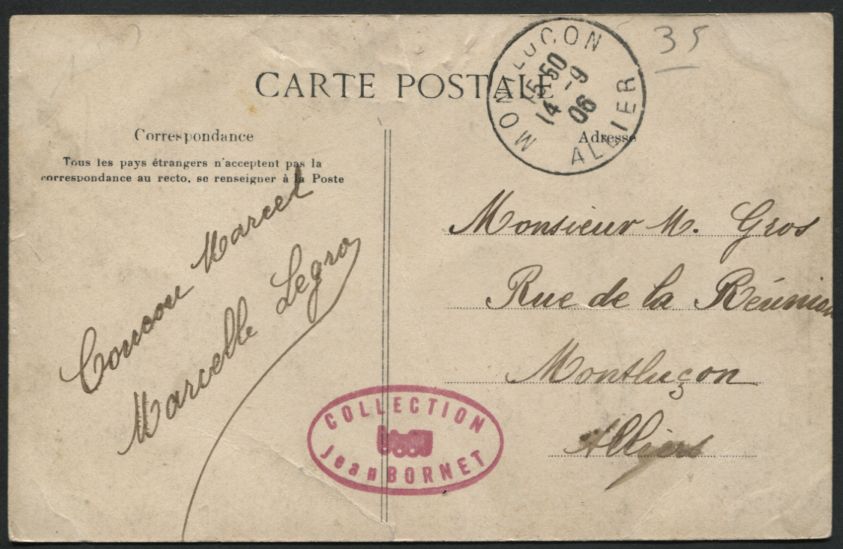 CARTE POSTALE
Correspondance
Tous les pays étrangers n'acceptent pas la
correspondance au recto, se renseigner à la Poste
Coucou Marcel
Marcelle Legro
MONTLUCON
15 50
14 - 9
06
ALLIER
35
Adresse
Monsieur M. Gros
Rue de la Réunion
Montluçon
Allier
COLLECTION
Jean BORNET